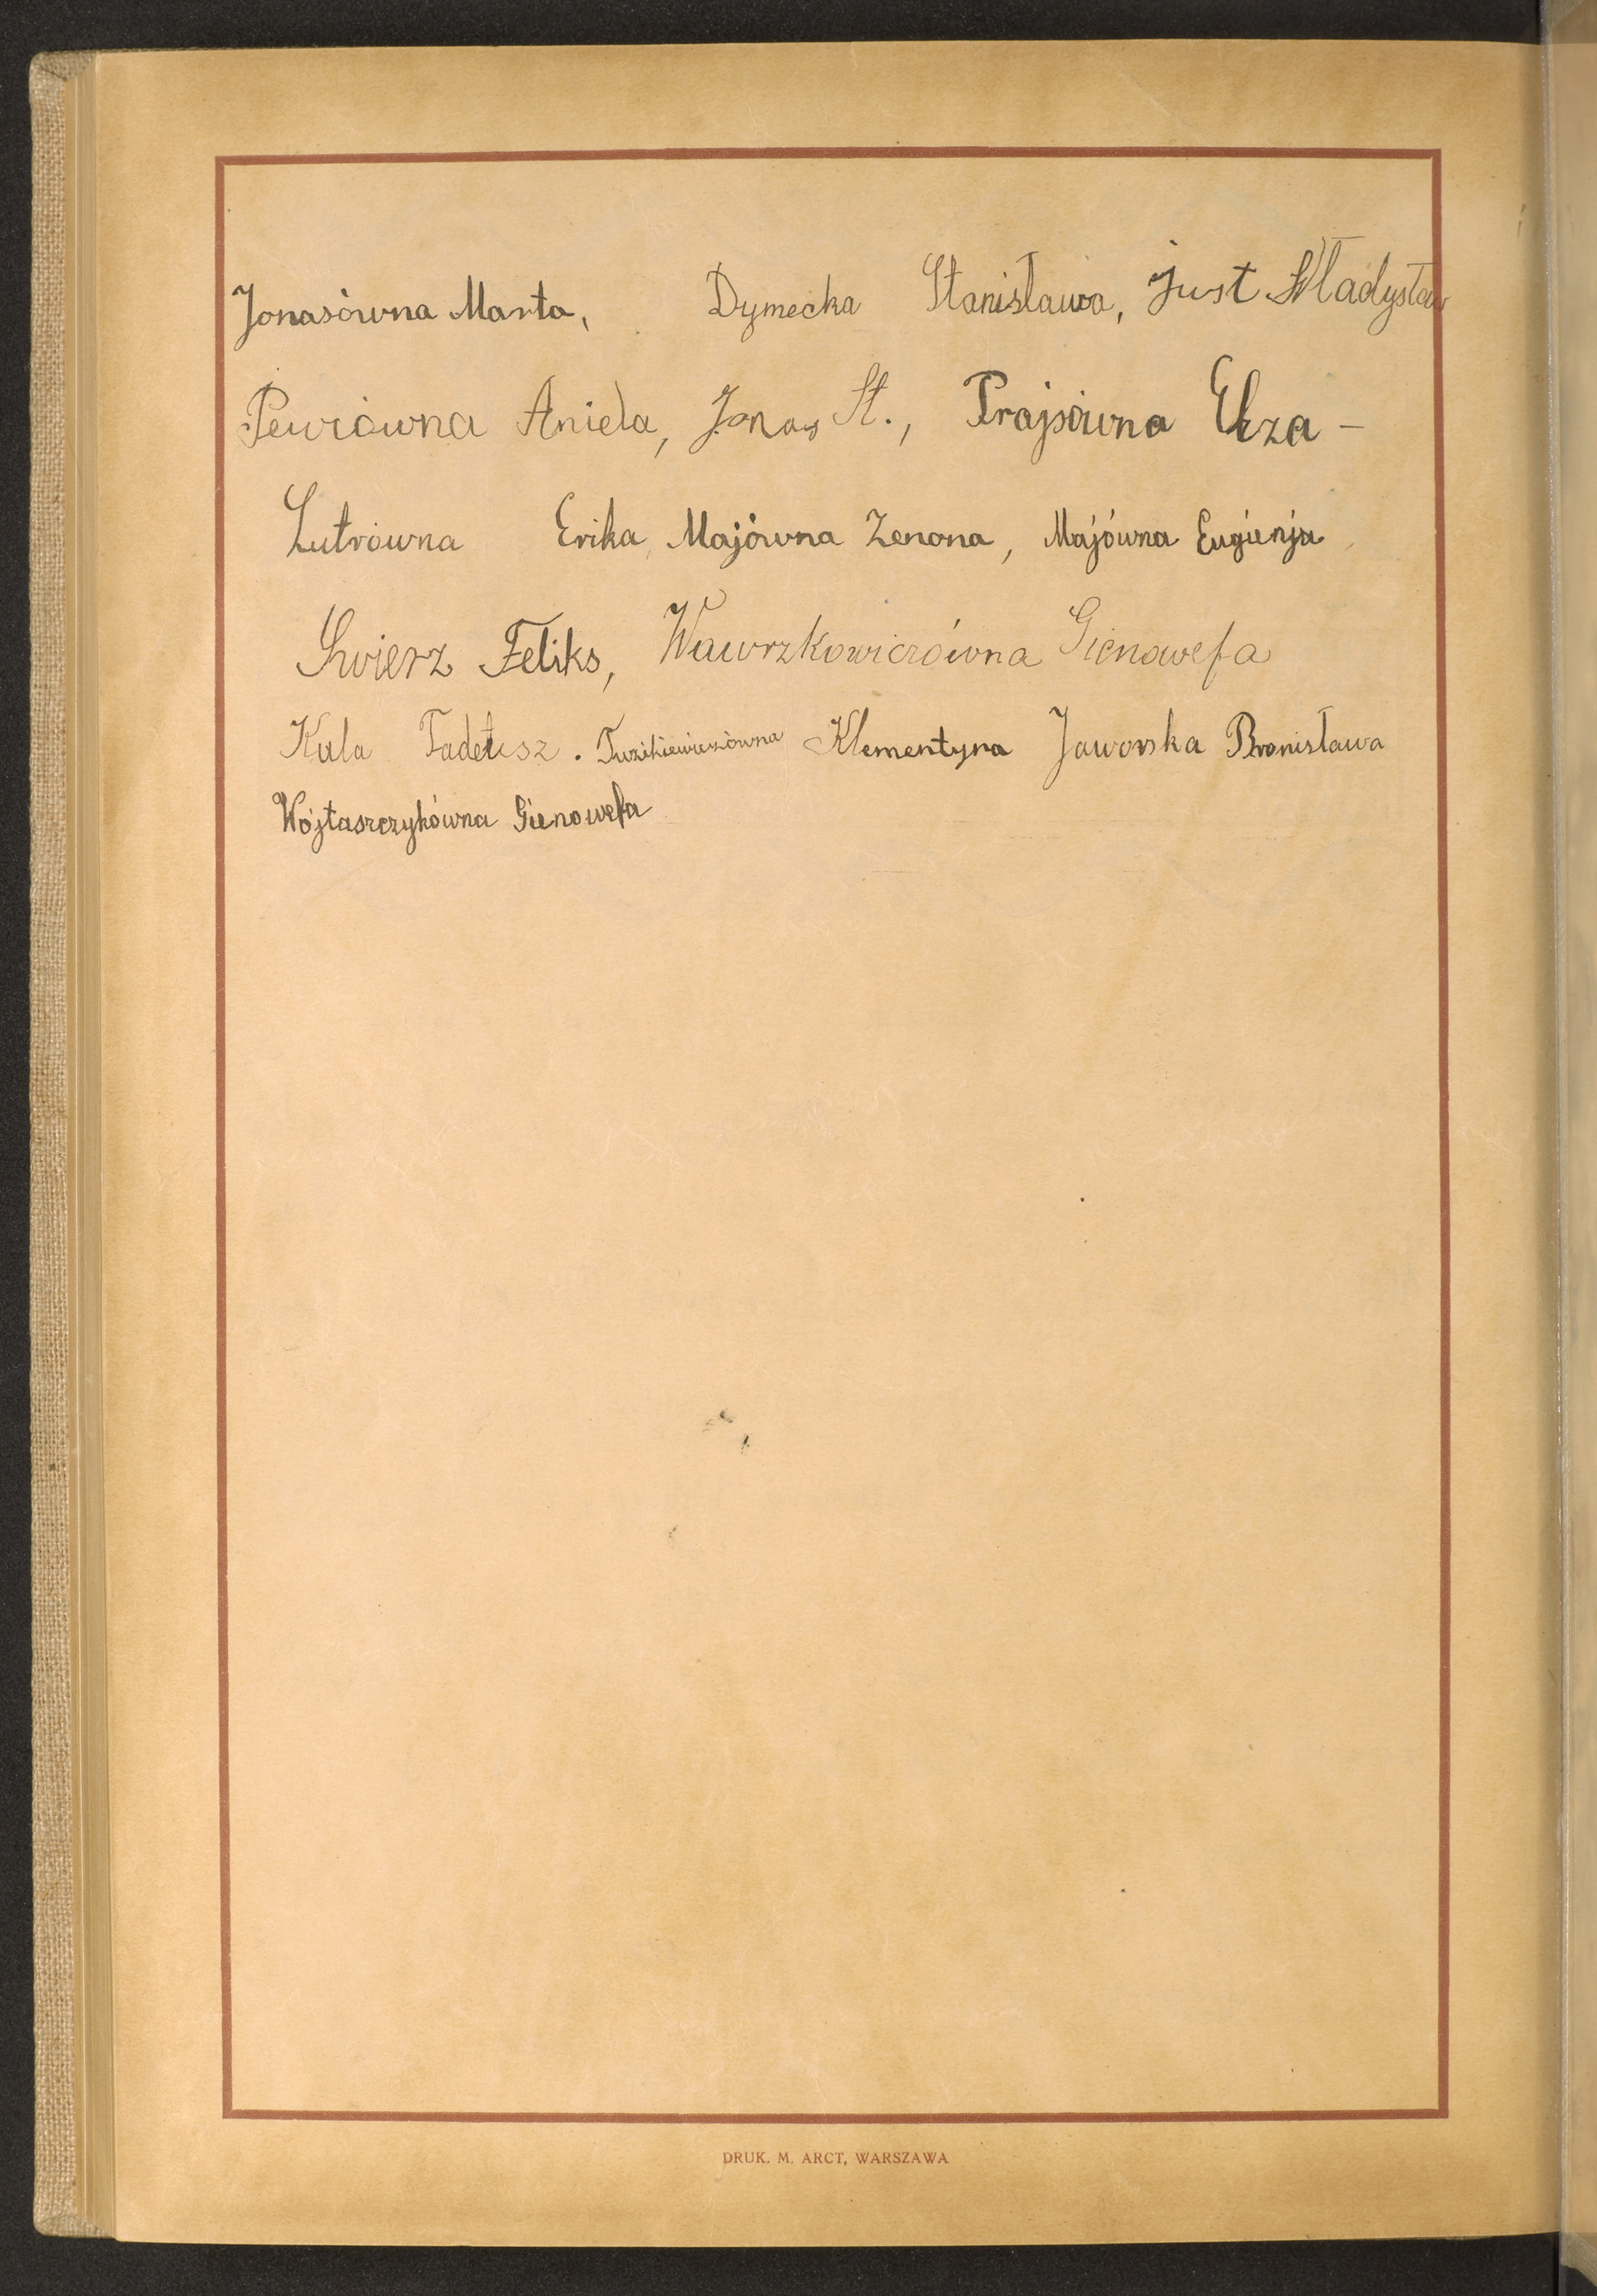 Jonasówna Marta, Dymecka Stanisława, Just Władysław
Pewiówna Aniela, Jonas St., Prajsówna Elza -
Lutrówna Erika, Majówna Zenona, Majówna Eugienja,
Swierz Feliks, Wawrzkowiczówna Gienowefa
Kula Tadeusz. Klementyna Jaworska Bronisława
Wójtaszczykówna Gienowefa
DRUK. M. ARCT, WARSZAWA